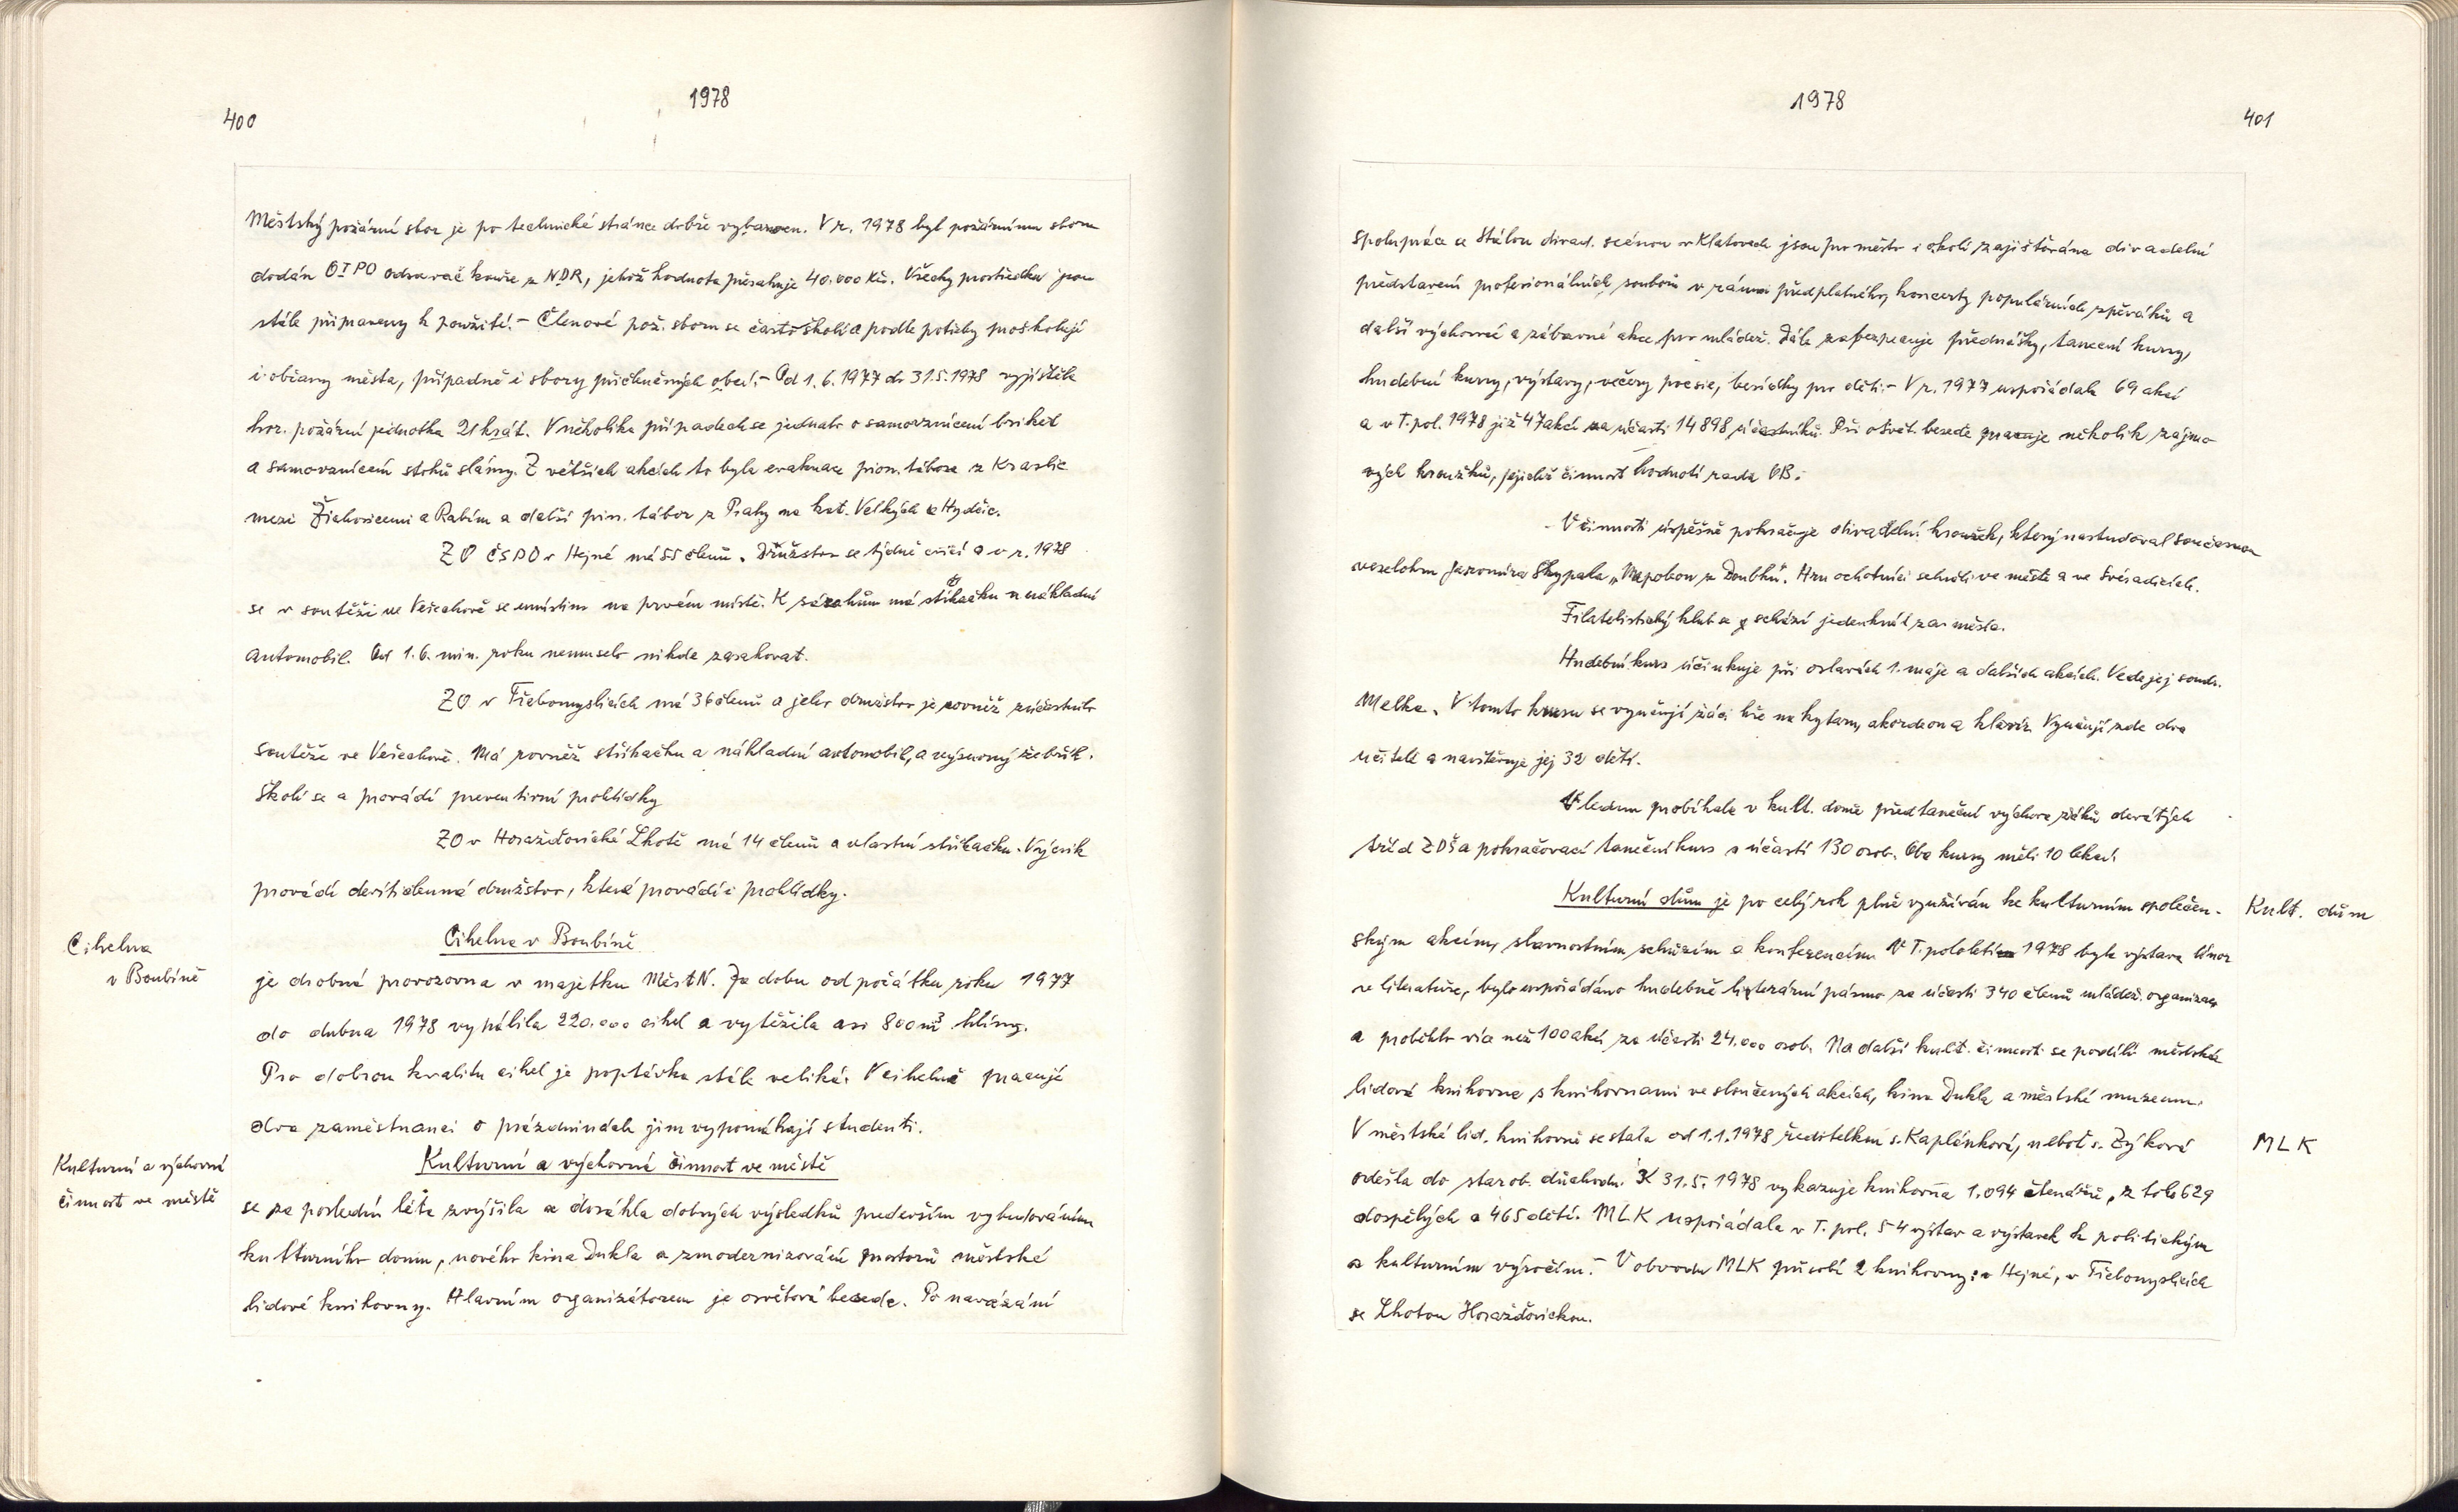 1978
400
Městský požární sbor je po technické stránce dobře vybaven. V r. 1978 byl požárnímu sboru
dodán OIPO odsavač kouře z NDR, jehož hodnota přesahuje 40.000 Kčs. Všechy prostředku jsou
stále připraveny k použití. – Členové pož. sboru se často školí a podle potřeby proškolují
i občany města, případně i sbory přičleněných obcí. – Od 1.6.1977 do 31.5.1978 vyjížděla
hor. požární jednotka 21 krát. V několika případech se jednalo o samovznícení briket
a samovznícení stohů slámy. Z větších akcích to byla evakuace pion. tábora z Kraslic
mezi Žichovicemi a Rabím a další pion. tábor z Prahy na kat. Velkých Hydčic.
ZO ČSPO v Hejné má 55 členů. Družstvo se týdně cvičí a v r. 1978
se v soutěži ve Veřechově se umístilo na prvém místě. K zásahům má stříkačku a nákladní
automobil. Od 1.6. min. roku nemuselo nikde zasahovat.
ZO v Třebomyslicích má 36 členů a jeho družstvo je rovněž zúčastnilo
soutěže ve Veřechově. Má rovněž stříkačku a nákladní automobil, a výsuvný žebřík.
Školí se a provádí preventivní prohlídky
ZO v Horažďovické Lhotě má 14 členů a vlastní stříkačku. Výcvik
provádí devítičlenná družstvo, které provádí i prohlídky.
Cihelna
v Boubíně
Cihelna v Boubíně
je drobná provozovna v majetku MěstNV. Za dobu od počátku roku 1977
do dubna 1978 vypálila 220.000 cihel a vytěžila asi 800 m³ hlíny.
Pro dobrou kvalitu cihel je poptávka stále veliká. V cihelně pracují
dva zaměstnanci o prázdninách jim vypomáhají studenti.
Kulturní a výchovná
činnost ve městě
Kulturní a výchovná činnost ve městě
se za poslední léta zvýšila a dosáhla dobrých výsledků především vybudováním
kulturního domu, nového kina Dukla a zmodernizování prostorů městské
lidové knihovny. Hlavním organizátorem je osvětová beseda. Po navázání
1978
401
spolupráce se Stálou divad. scénou v Klatovech jsou pro město i okolí zajišťována divadelní
představení profesionálních souborů v rámci předplatného, koncerty populárních zpěváků a
další výchovné a zábavné akce pro mládež. Dále zabezpečuje přednášky, taneční kursy,
hudební kursy, výstavy, večery poesie, besídky pro děti. – V r. 1977 uspořádala 69 akcí
a v I. pol. 1978 již 47 akcí za účasti 14898 účastníků. Při osvět. besedě pracuje několik zájmo-
vých kroužků, jejichž činnost hodnotí rada OB.
V činnosti úspěšně pokračuje divadelní kroužek, který nastudoval současnou
veselohru Jaromíra Skypala „Napoleon z Doubků“. Hru ochotníci sehráli ve městě a ve Svéradicích.
Filatelistický klub se schází jedenkrát za měsíc.
Hudební kurs účinkuje při oslavách 1. máje a dalších akcích. Vede jej soudr.
Melka. V tomto kursu se vyučují žáci hře na kytaru, akordeon a klavír. Vyučují zde dva
učitelé a navštěvuje jej 32 dětí.
V lednu probíhala v kult. domě předtaneční výchova žáků devátých
tříd ZDŠ a pokračovací taneční kurs s účastí 130 osob. Oba kursy měli 10 lekcí.
Kulturní dům je po celý rok plně využíván ke kulturním společen-
Kult. dům
ským akcím, slavnostním schůzím a konferencím. V I. pololetí 1978 byla výstava Únor
v literatuře, bylo uspořádáno hudebně literární pásmo za účasti 340 členů mládež. organizace
a proběhlo více než 100 akcí za účasti 24.000 osob. Na další kult. činnosti se podílí městská
lidová knihovna s knihovnami ve sloučených akcích, kina Dukla a městské muzeum.
V městské lid. knihovně se stala od 1.1.1978 ředitelkou s. Kaplánková, neboť s. Zýková
MLK
odešla do starob. důchodu. K 31.5.1978 vykazuje knihovna 1.094 čtenářů, z toho 629
dospělých a 465 dětí. MLK uspořádala v I. pol. 54 výstav a výstavek k politickým
a kulturním výročím. – V obvodu MLK působí 2 knihovny: v Hejné, v Třebomyslicích
se Lhotou Horažďovickou.